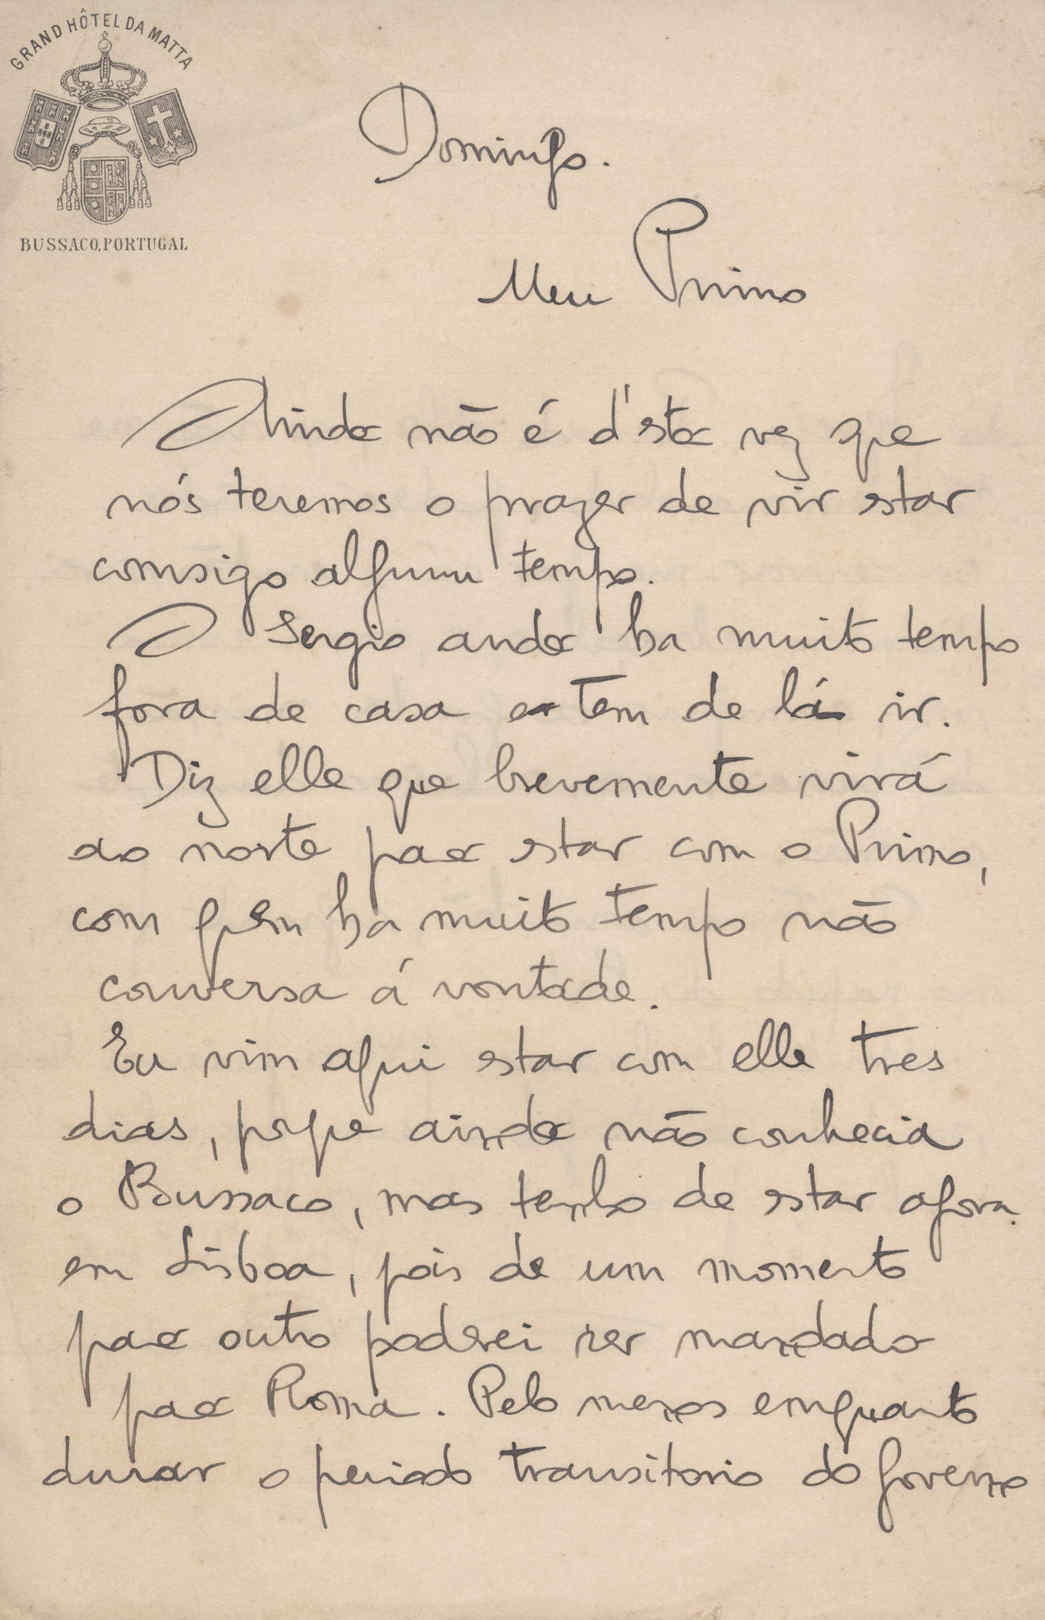 GRAND HÔTEL DA MATTA
BUSSACO, PORTUGAL
Domingo.
Meu Primo
Ainda não é d'esta vez que
nós teremos o prazer de vir estar
comsigo algum tempo.
O Sergio anda ha muito tempo
fora de casa e tem de lá ir.
Diz elle que brevemente virá
ao norte para estar com o Primo,
com quem ha muito tempo não
conversa á vontade.
Eu vim aqui estar com elle tres
dias, porque ainda não conhecia
o Bussaco, mas tenho de estar agora
em Lisboa, pois de um momento
para outro poderei ser mandado
para Roma. Pelo menos emquanto
durar o periodo transitorio do governo